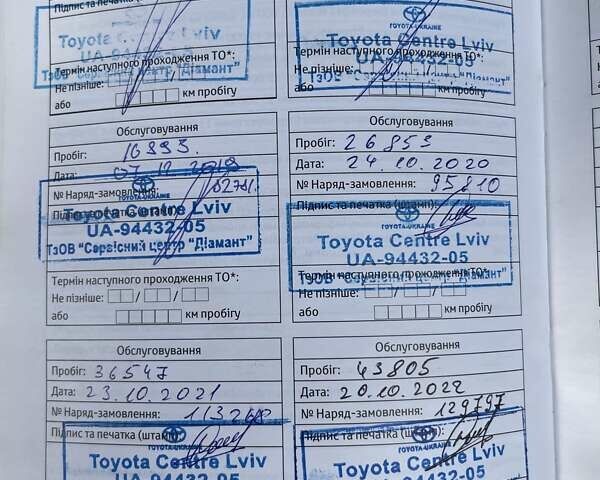 Підпис та печатка
TOYOTA-UKRAINE
Toyota Centre Lviv
UA-94432-05
ТзОВ "Сервісний центр "Діамант"
Термін наступного проходження ТО*:
Не пізніше: / /
або км пробігу
TOYOTA-UKRAINE
Toyota Centre Lviv
UA-94432-05
Термін наступного проходження ТО*:
Не пізніше: / /
ТзОВ "Сервісний центр "Діамант"
або км пробігу
Обслуговування
Пробіг: 16993.
Дата: 07.12.2019
№ Наряд-замовлення:
TOYOTA-UKRAINE
Toyota Centre Lviv
UA-94432-05
ТзОВ "Сервісний центр "Діамант"
Термін наступного проходження ТО*:
Не пізніше: / /
або км пробігу
Обслуговування
Пробіг: 26853
Дата: 24.10.2020
№ Наряд-замовлення: 95810
Підпис та печатка (штамп):
TOYOTA-UKRAINE
Toyota Centre Lviv
UA-94432-05
Термін наступного проходження ТО*:
ТзОВ "Сервісний центр "Діамант"
Не пізніше: / /
або км пробігу
Обслуговування
Пробіг: 36547
Дата: 23.10.2021
№ Наряд-замовлення: 113268
Підпис та печатка (штамп):
TOYOTA-UKRAINE
Toyota Centre Lviv
UA-94432-05
Обслуговування
Пробіг: 43805
Дата: 20.10.2022
№ Наряд-замовлення: 129797
Підпис та печатка (штамп):
TOYOTA-UKRAINE
Toyota Centre Lviv
UA-94432-05